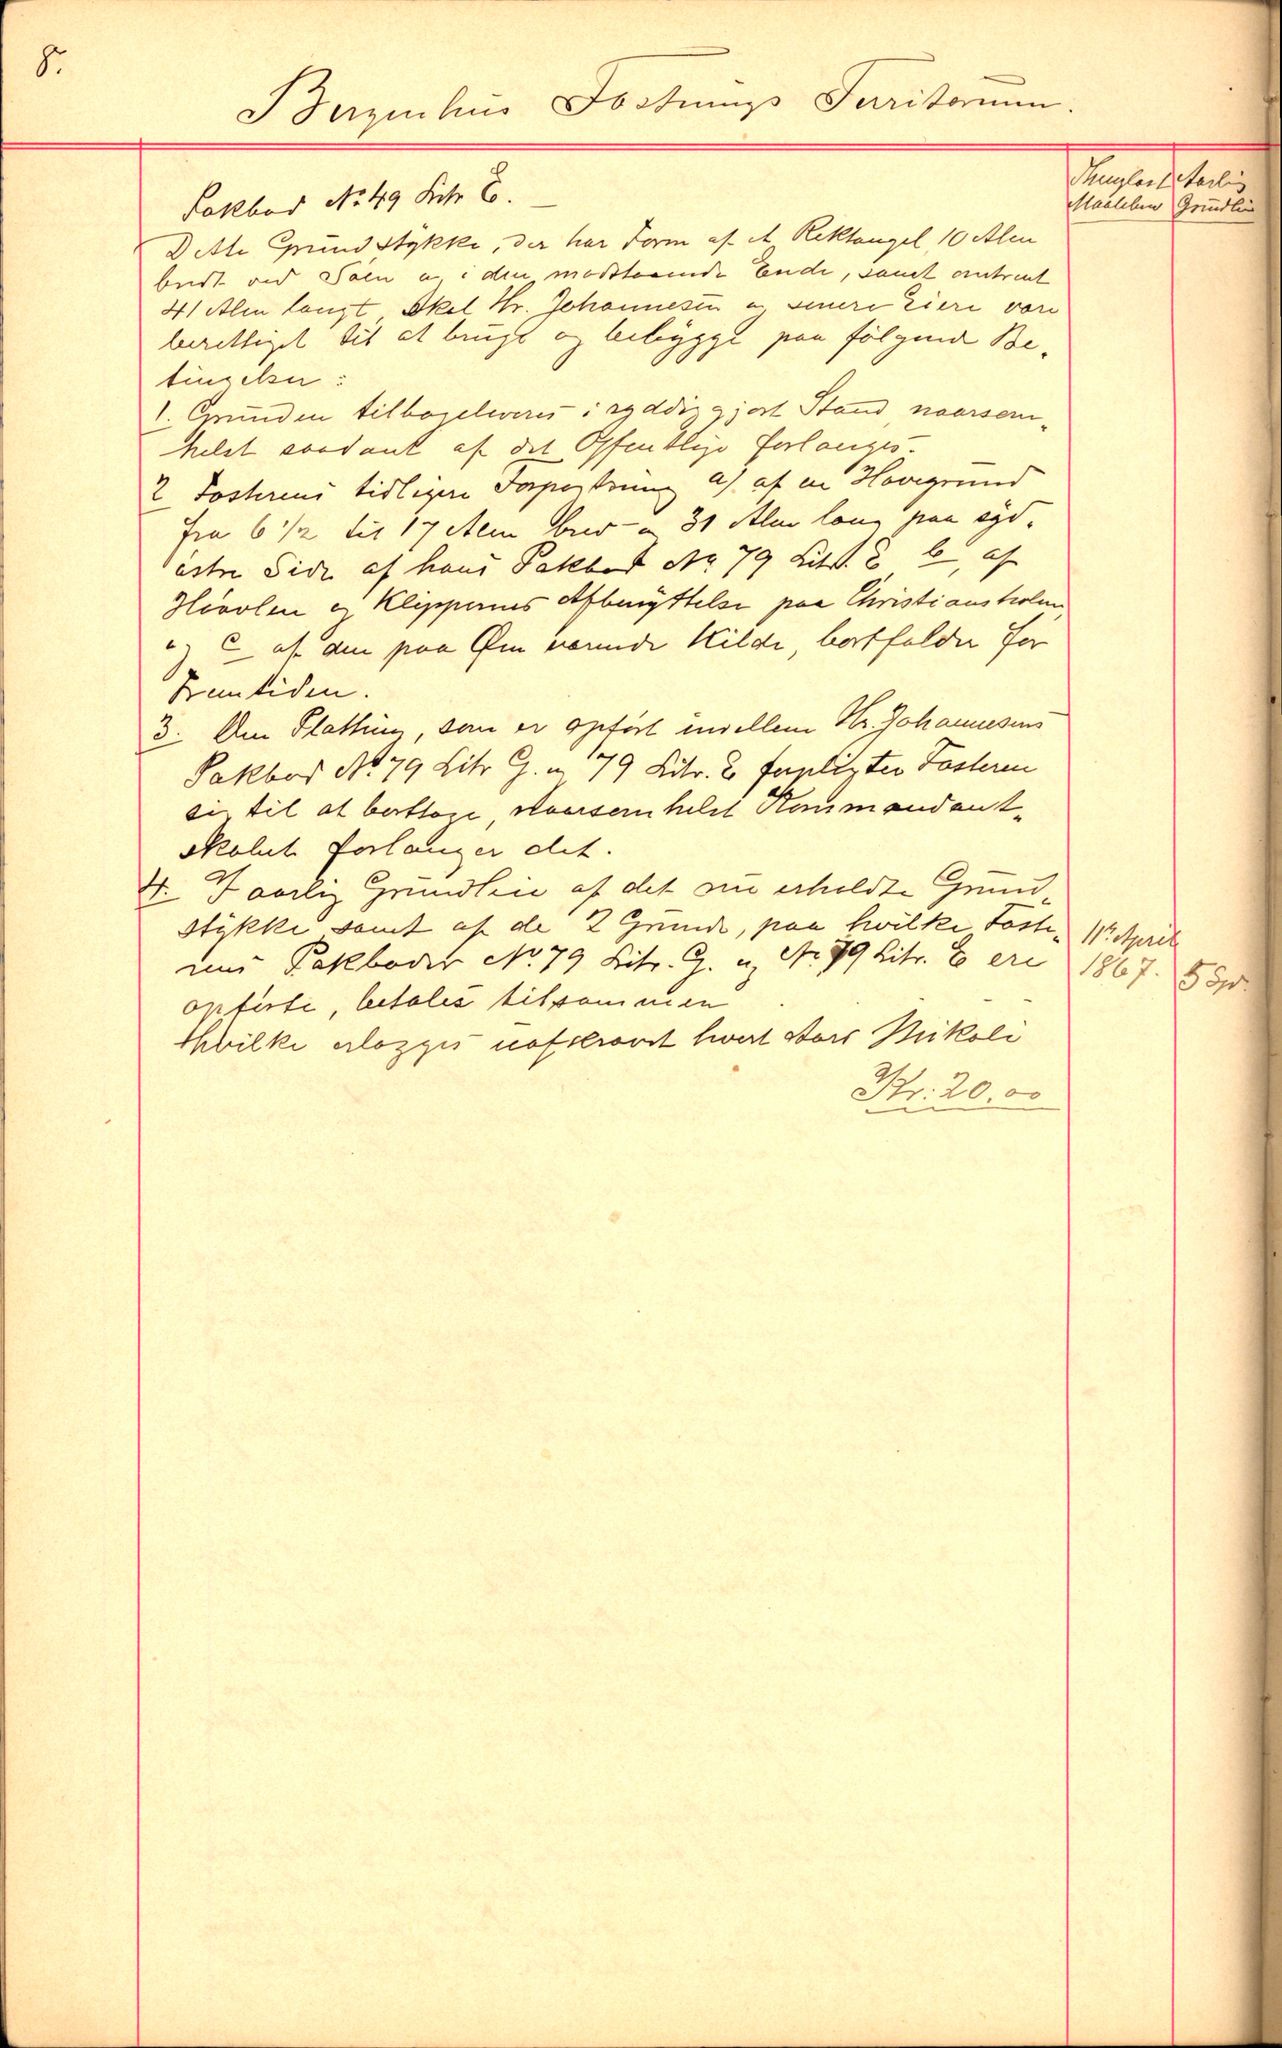 8.
Bergenhus Fæstnings Territorium.
Aarlig
Grundleie
Pakbod No. 49 Litr E.
Dette Grundstykke, der har Form af et Rektangel 10 Alen
bredt ved Søen og i den modstaaende Ende, samt omtrent
41 Alen langt, skal Hr. Johannesen og senere Eiere være
berettiget til at bruge og bebygge paa følgende Be-
tingelser:
1. Grunden tilbageleveres i ryddiggjort Stand, naarsom-
helst saadant af det Offentlige forlanges.
2 Fæsterens tidligere Forpagtning a) af en Havegrund
fra 6 1/2 til 17 Alen bred og 31 Alen lang paa syd-
østre Side af hans Pakbod No. 79 Litr. E, b, af
og Klippernes Afbenyttelse paa Christiansholm,
og c af den paa Øen værende Kilde, bortfalder for
Fremtiden.
3. Den Platting, som er opført imellem Hr. Johannesens
Pakbod No. 79 Litr G. og 79 Litr. E forpligter Fæsteren
sig til at borttage, naarsomhelst Kommandant-
skabet forlanger det.
4. I aarlig Grundleie af det nu erholdte Grund-
stykke samt af de 2 Grunde, paa hvilke Fæste-
rens Pakboder No. 79 Litr. G. og No. 79 Litr. E ere
opførte, betales tilsammen
hvilke erlægges uafkrævet hvert Aars Mikeli
Kr: 20.00
11te April
1867.
5 Spd.